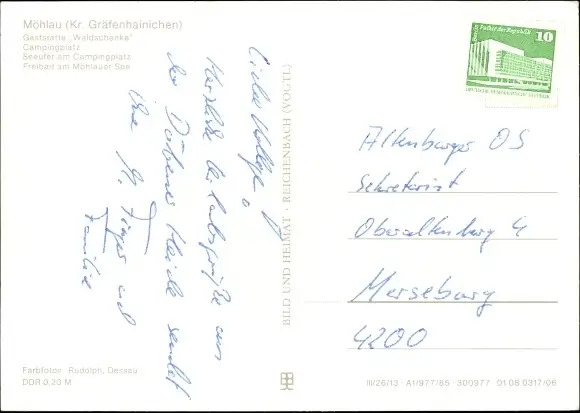 Möhlau (Kr. Gräfenhainichen)
Gaststätte „Waldschenke"
Campingplatz
Seeufer am Campingplatz
Freibad am Möhlauer See
10
Palast der Republik
Liebe Kollegen,
Herzliche Urlaubsgrüße aus
der Dübener Heide sendet
Ihre H. und
Familie
BILD UND HEIMAT · REICHENBACH (VOGTL)
Altenburger OS
Sekretariat
Oberaltenburg 4
Merseburg
4200
Farbfotos: Rudolph, Dessau
DDR 0,20 M
III/26/13 A1/977/85 300977 01 08 0317/06